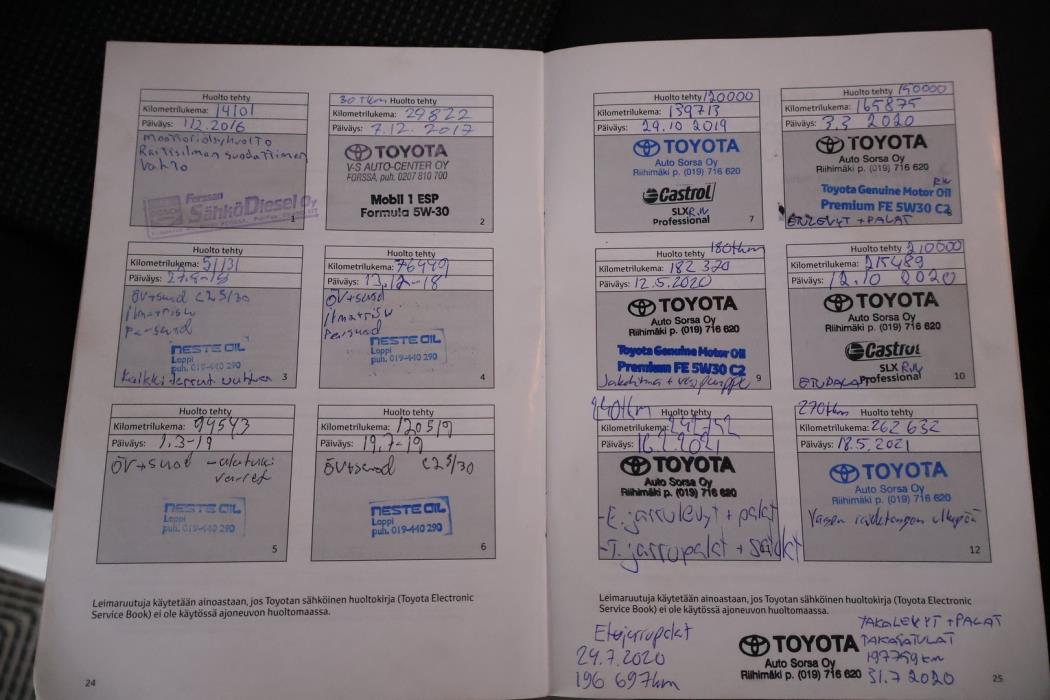 Huolto tehty
Kilometrilukema: 14101
Päiväys: 1.12.2016
Moottoriöljyhuolto
Raitisilman suodattimen
vaihto
Forssan
SähköDiesel Oy
1
30 Tkm Huolto tehty
Kilometrilukema: 29822
Päiväys: 7.12. 2017
TOYOTA
V-S AUTO-CENTER OY
FORSSA, puh. 0207 810 700
Mobil 1 ESP
Formula 5W-30
2
Huolto tehty
Kilometrilukema: 51131
Päiväys:
ÖV+suod C2 5/30
Ilmatrisu
NESTE OIL
Loppi
puh. 019-440 290
3
Huolto tehty
Kilometrilukema: 76449
Päiväys: 13.12-18
ÖV+suod
Ilmatrisu
NESTE OIL
Loppi
puh. 019-440 290
4
Huolto tehty
Kilometrilukema: 94543
Päiväys: 1.3-19
ÖV+suod - alatuki
varret
NESTE OIL
Loppi
puh. 019-440 290
5
Huolto tehty
Kilometrilukema: 120519
Päiväys: 19.7-19
ÖV+suod C2 5/30
NESTE OIL
Loppi
puh. 019-440 290
6
Leimaruutuja käytetään ainoastaan, jos Toyotan sähköinen huoltokirja (Toyota Electronic
Service Book) ei ole käytössä ajoneuvon huoltomaassa.
24
Huolto tehty 120000
Kilometrilukema: 139713
Päiväys: 29.10 2019
TOYOTA
Auto Sorsa Oy
Riihimäki p. (019) 716 620
Castrol
SLX
Professional
7
Huolto tehty 150000
Kilometrilukema: 165875
Päiväys: 3.3 2020
TOYOTA
Auto Sorsa Oy
Riihimäki p. (019) 716 620
Toyota Genuine Motor Oil
Premium FE 5W30 C2
ETULEVYT + PALAT
8
Huolto tehty 180tkm
Kilometrilukema: 182 320
Päiväys: 12.5.2020
TOYOTA
Auto Sorsa Oy
Riihimäki p. (019) 716 620
Toyota Genuine Motor Oil
Premium FE 5W30 C2
Jakohihna + vesipumppu
9
Huolto tehty 210000
Kilometrilukema: 215489
Päiväys: 12.10 2020
TOYOTA
Auto Sorsa Oy
Riihimäki p. (019) 716 620
Castrol
SLX
ETUPALAT Professional
10
240tkm
Huolto tehty
Kilometrilukema: 241752
Päiväys: 16.2.2021
TOYOTA
Auto Sorsa Oy
Riihimäki p. (019) 716 620
-E. jarrulevyt + palat
-T. jarrupalat + satulat
11
270tkm
Huolto tehty
Kilometrilukema: 262 632
Päiväys: 18.5.2021
TOYOTA
Auto Sorsa Oy
Riihimäki p. (019) 716 620
Vasen raidetangon ulkopää
12
Leimaruutuja käytetään ainoastaan, jos Toyotan sähköinen huoltokirja (Toyota Electronic
Service Book) ei ole käytössä ajoneuvon huoltomaassa.
Etujarrupalat
24.7.2020
196 697km
TOYOTA
Auto Sorsa Oy
Riihimäki p. (019) 716 620
TAKALEVYT + PALAT
TAKASATULAT
197759 km
31.7 2020
25